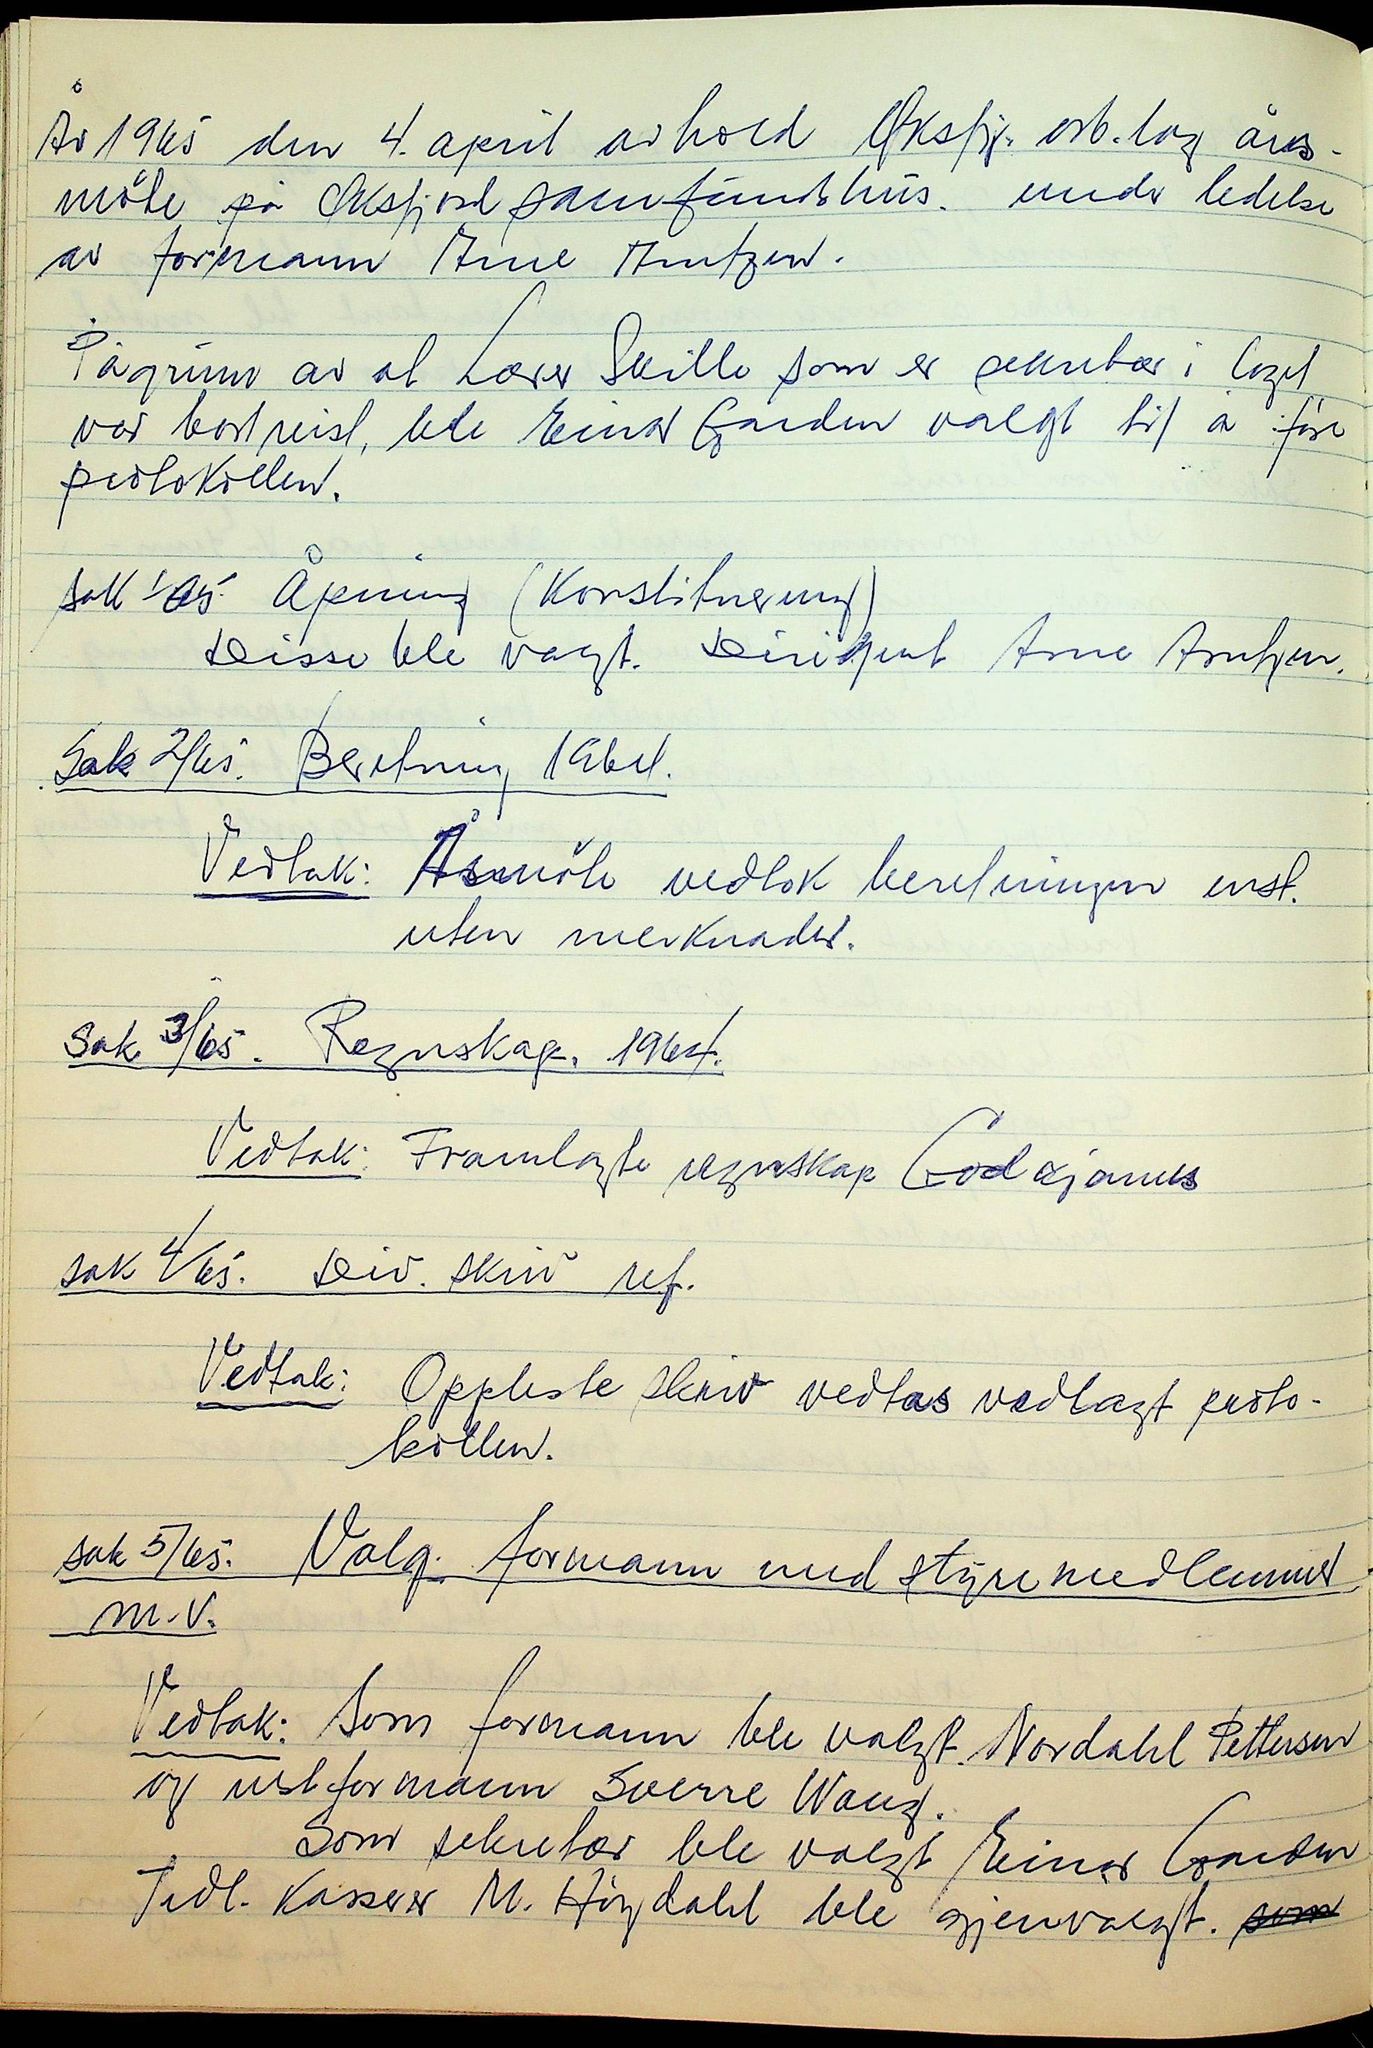 År 1965 den 4. april avhold Øksfj. arb.lag års-
möte på Øksfjord samfundshus. under ledelse
av formann Arne Arntzen.
Pågrunn av at Lærer Skille som er sekretær i laget
var bortreist, ble Einar Garden valgt til å före
protokollen.
sak 1/65 Åpning (Konstituering)
Disse ble valgt. Dirigent Arne Arntzen.
Sak 2/65. Beretning 1964.
Vedtak: Åsmöte vedtok beretningen enst.
uten merknader.
Sak 3/65. Regnskap. 1964.
Vedtak: Framlagte regnskap Godkjennes
sak 4/65. Div. skriv ref.
Vedtak: Oppleste skriv vedtas vedlagt proto-
kollen.
sak 5/65. Valg. formann med styremedlemmer
m.v.
Vedtak: Som formann ble valgt. Nordahl Pettersen
og nestformann Sverre Wang.
Som sekretær ble valgt Einar Garden
Tidl. Kasserer M. Högdahl ble gjenvalgt. som